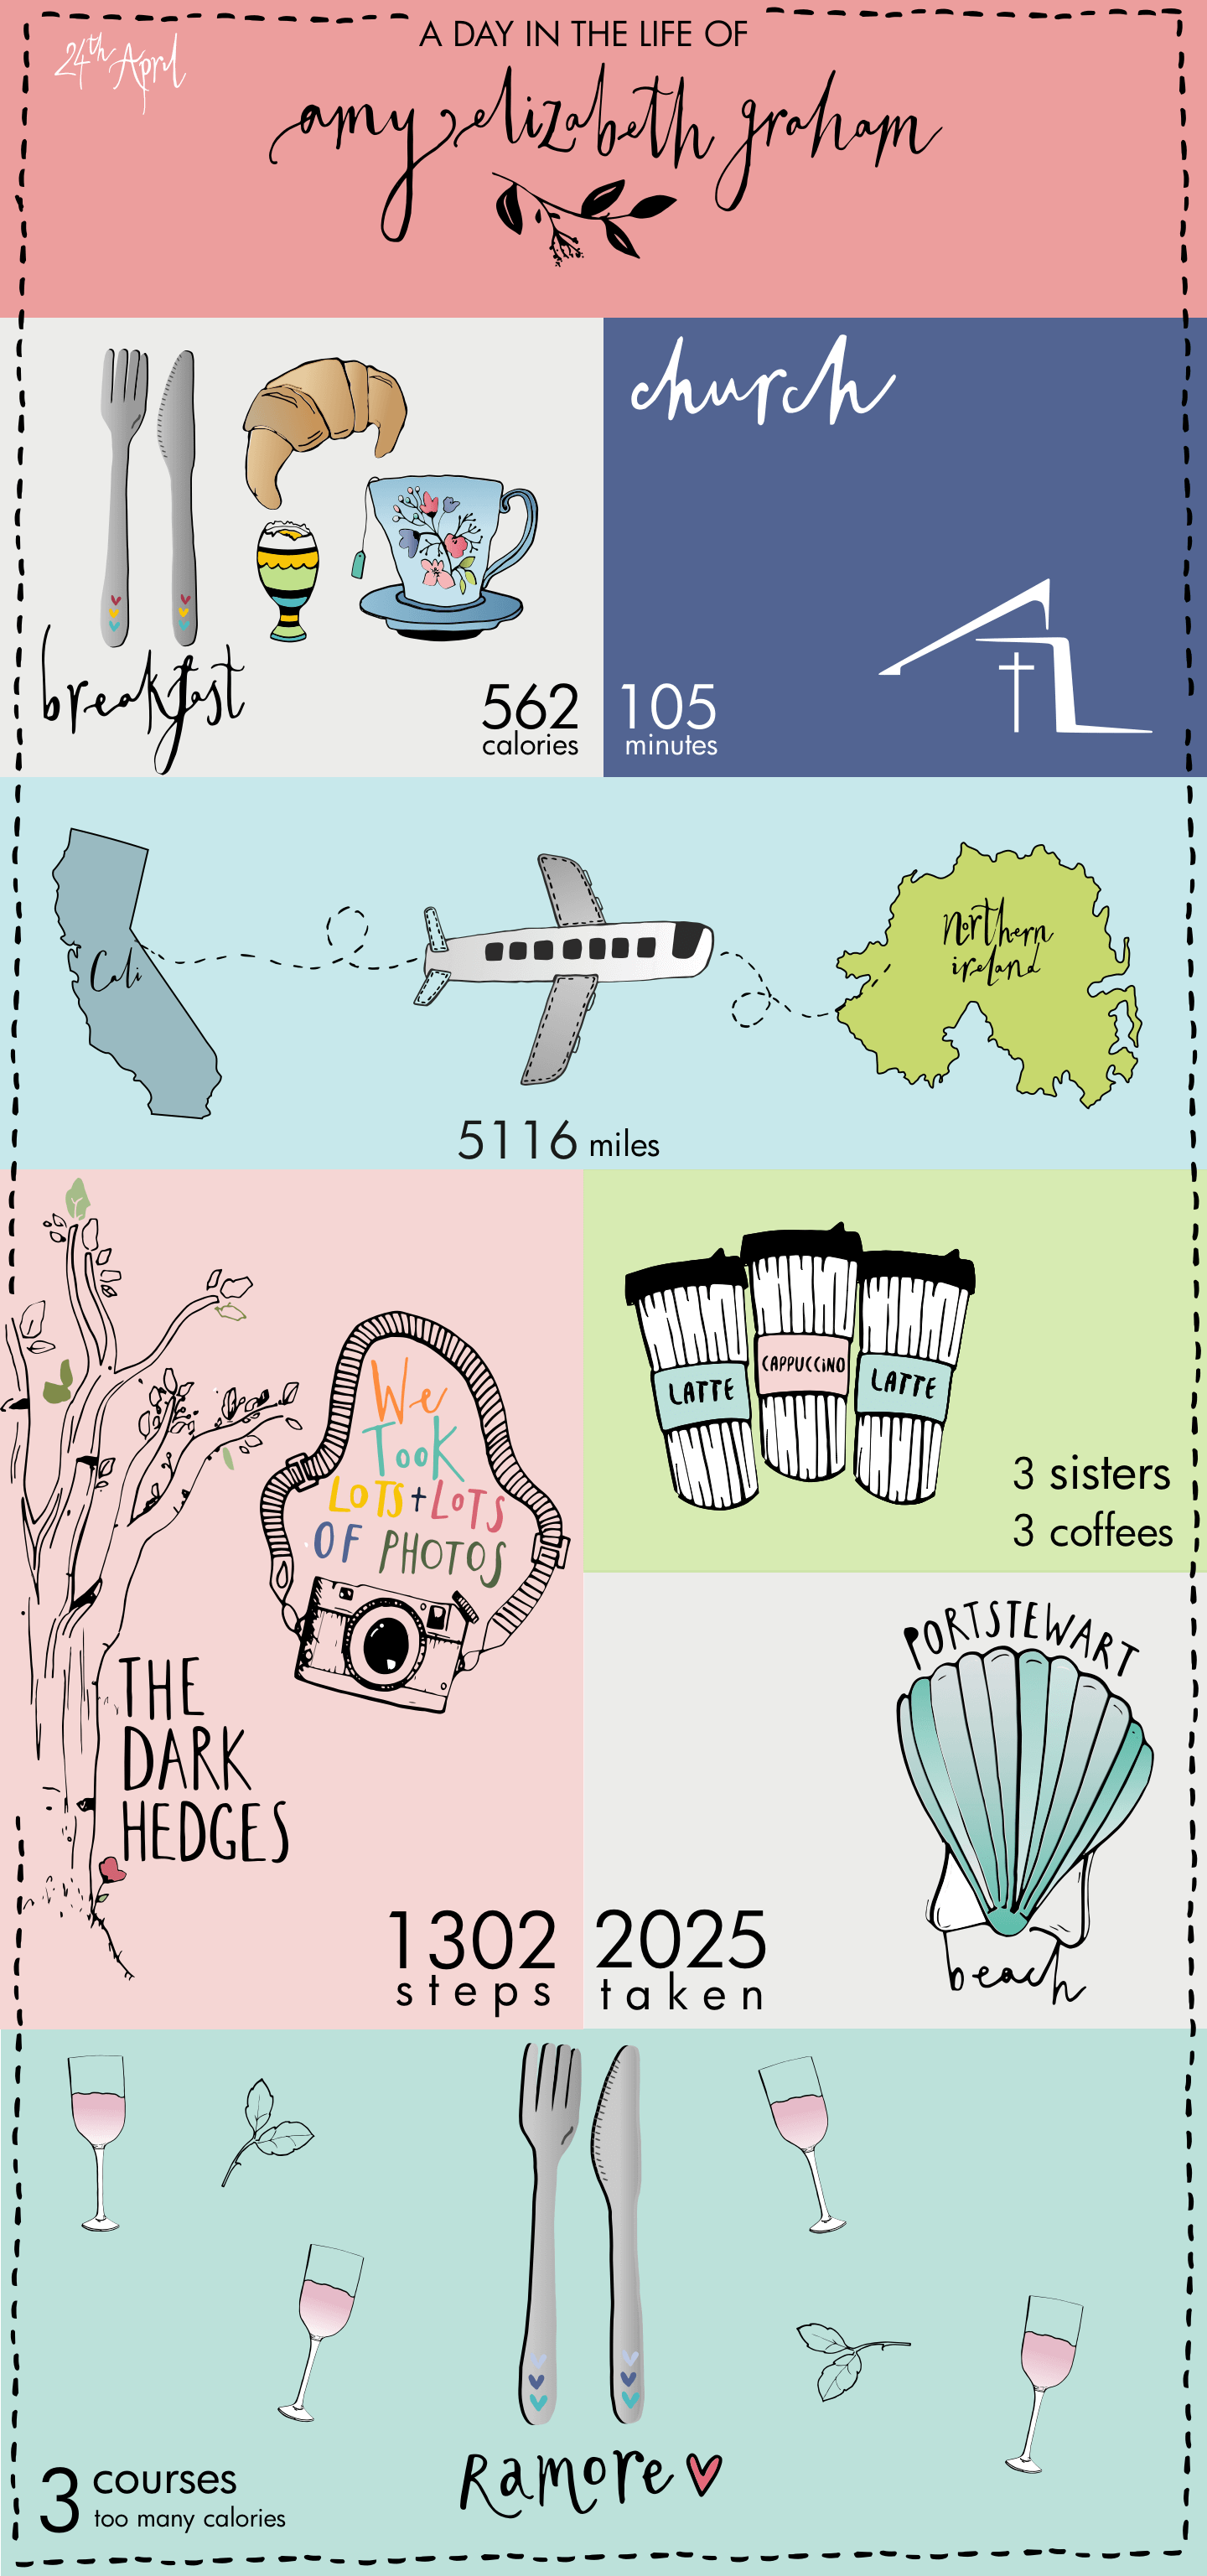 24th April
A DAY IN THE LIFE OF
amy elizabeth graham
breakfast
562
calories
church
105
minutes
Cali
northern
ireland
5116 miles
We
Took
LOTS + LOTS
OF PHOTOS
THE
DARK
HEDGES
1302
steps
LATTE
CAPPUCCiNO
LATTE
3 sisters
3 coffees
PORTSTEWART
beach
2025
taken
Ramore
3 courses
too many calories